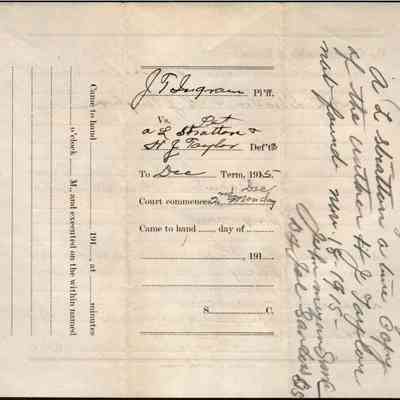 J T Ingram Pl'ff.
Vs. Pet
A L Stratton &
H J Taylor Def't
To Dec Term, 1915
Court commences 2nd Monday Dec
Came to hand ........ day of ..........
191
S. C.
A L Stratton a true Copy
of the within H J Taylor
not found nov 18 1915-
John
By Joe Sanders DS
Came to hand 191 , at minutes
o'clock M., and executed on the within named